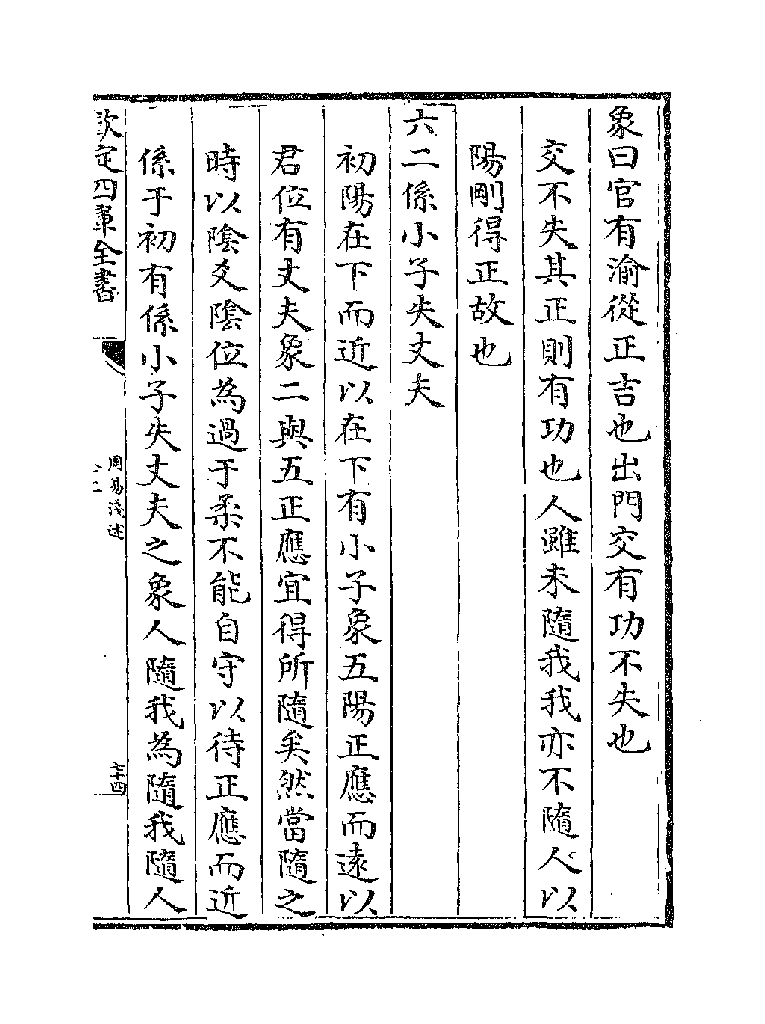 象曰官有渝從正吉也出門交有功不失也
交不失其正則有功也人雖未隨我我亦不隨人以
陽剛得正故也
六二係小子失丈夫
初陽在下而近以在下有小子象五陽正應而遠以
君位有丈夫象二與五正應宜得所隨矣然當隨之
時以陰爻陰位為過于柔不能自守以待正應而近
係于初有係小子失丈夫之象人隨我為隨我隨人
欽定四庫全書
周易淺述